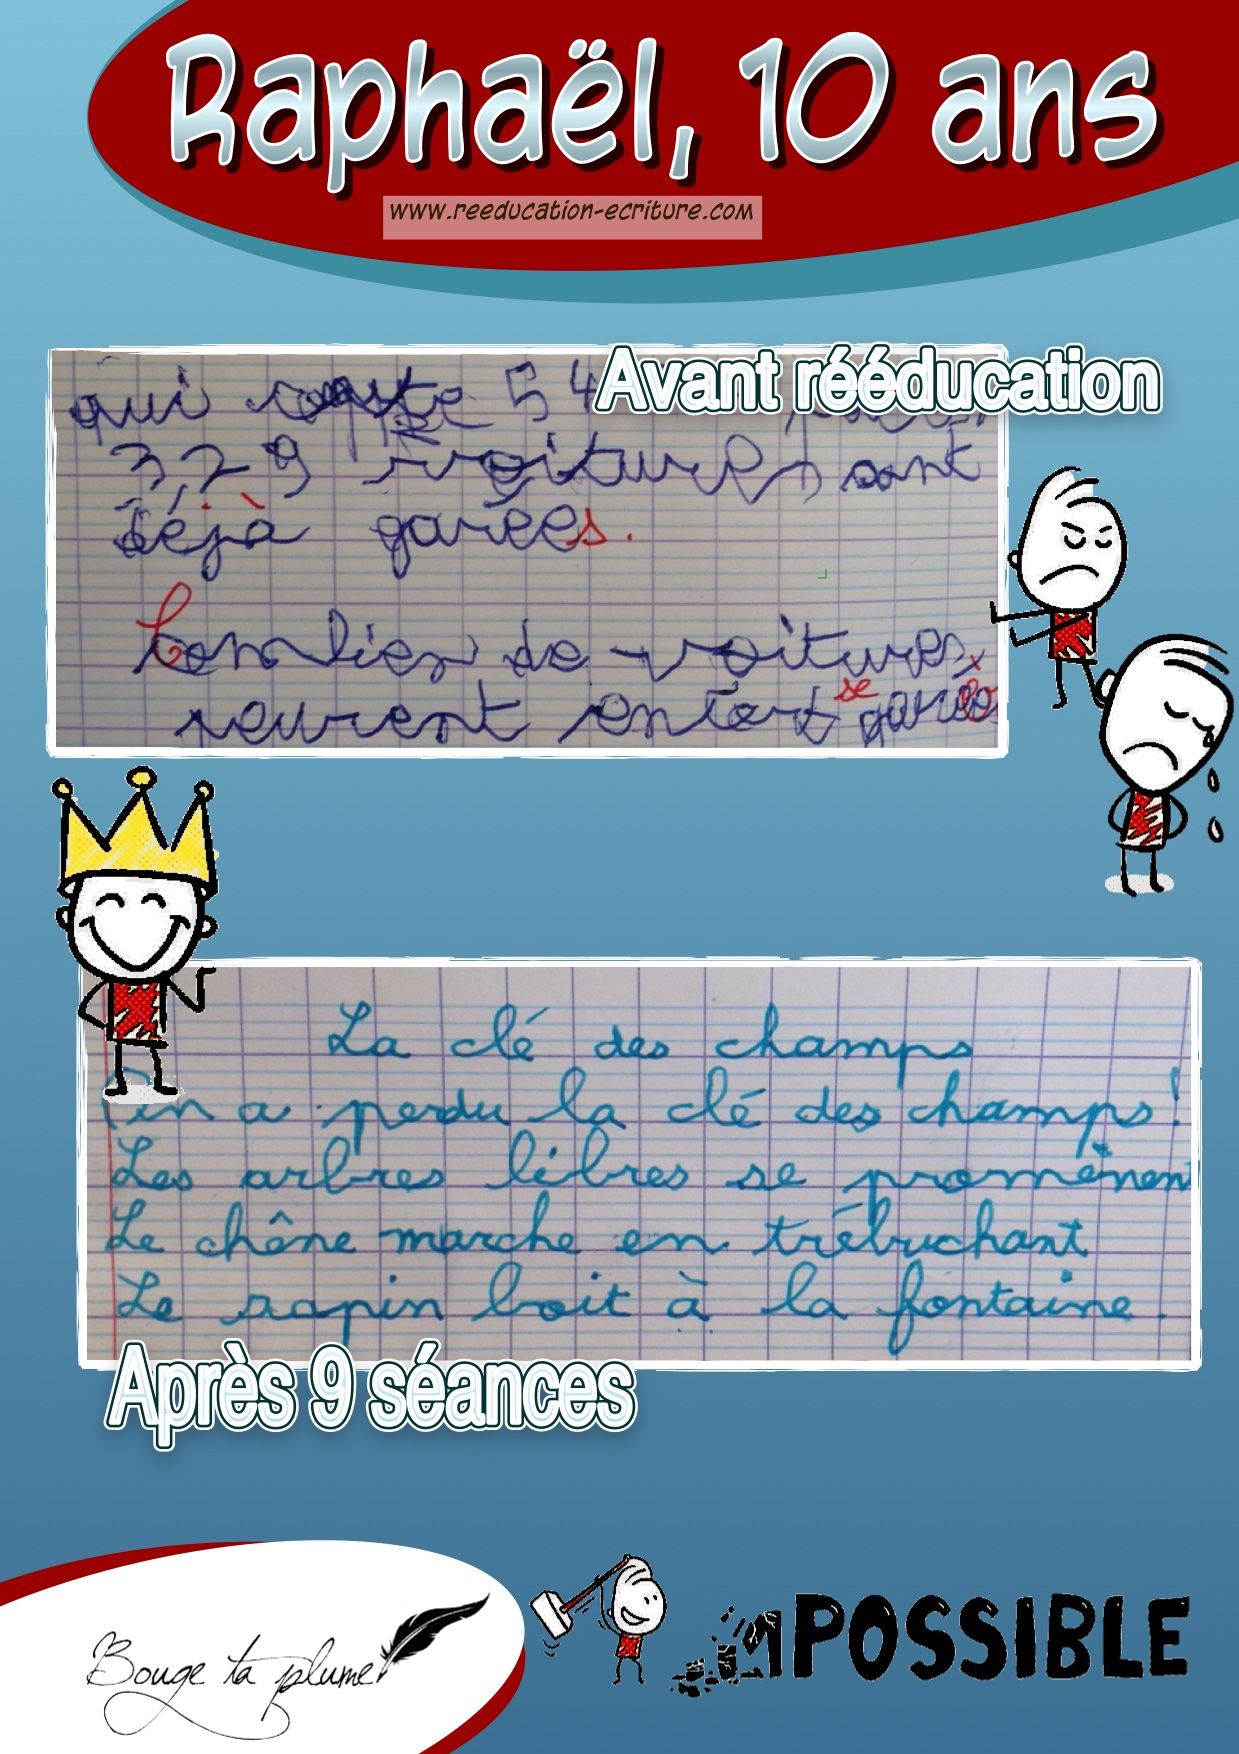 Raphaël, 10 ans
www.reeducation-ecriture.com
Avant rééducation
qui compte 5 4
329 voitures sont
déjà garées.
Combien de voitures
peuvent se garer
La clé des champs
a perdu la clé des champs !
Les arbres libres se promènent
Le chêne marche en trébuchant
Le sapin boit à la fontaine.
Après 9 séances
Bouge ta plume
POSSIBLE